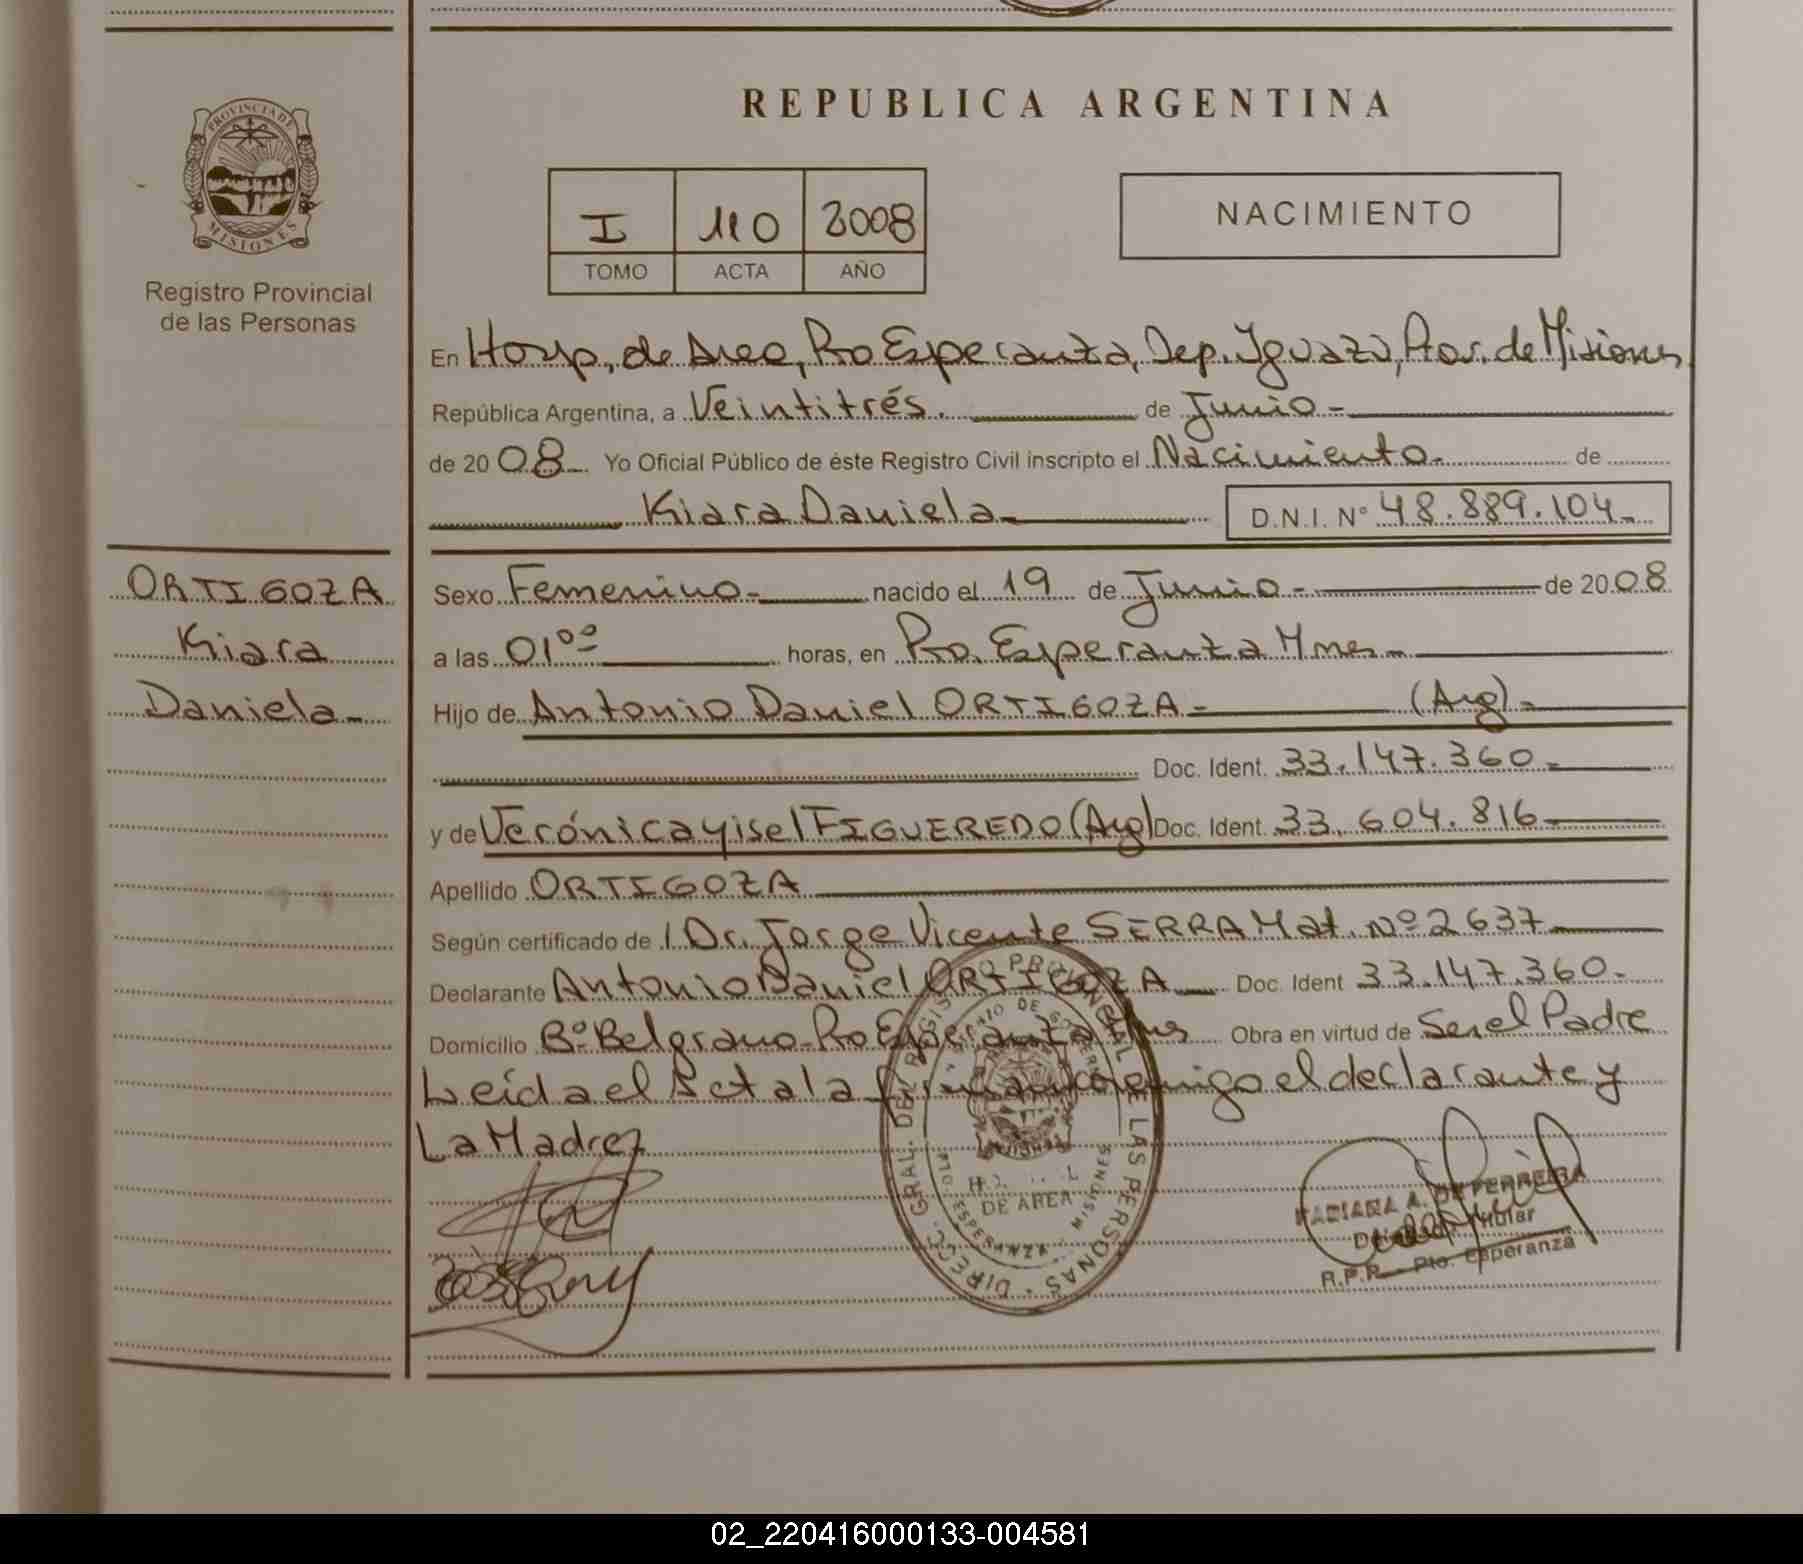 REPUBLICA ARGENTINA
PROVINCIA DE
MISIONES
Registro Provincial
de las Personas
I 110 2008
TOMO ACTA AÑO
NACIMIENTO
En Hosp, de Area, Pto Esperanza, Dep. Iguazú, Prov. de Misiones
República Argentina, a Veintitrés. de Junio-
de 2008 Yo Oficial Público de éste Registro Civil inscripto el Nacimiento. de
Kiara Daniela- D.N.I. Nº 48.889.104-
ORTIGOZA
Kiara
Daniela-
Sexo Femenino- nacido el 19 de Junio- de 2008
a las 01ºº horas, en Pto. Esperanza Mnes-
Hijo de Antonio Daniel ORTIGOZA- (Arg)-
Doc. Ident. 33.147.360-
y de Verónica yisel FIGUEREDO (Arg) Doc. Ident. 33.604.816-
Apellido ORTIGOZA
Según certificado de Dr. Jorge Vicente SERRA Mat. Nº 2637
Declarante Antonio Daniel ORTIGOZA Doc. Ident 33.147.360-
Domicilio Bº Belgrano- Pto Esperanza Mnes Obra en virtud de Ser el Padre
Leída el Acta la firman conmigo el declarante y
La Madre
DIRECC. GRAL. DEL REGISTRO PROVINCIAL DE LAS PERSONAS
DE AREA
PTO. ESPERANZA MISIONES
FABIANA A. DE FERREIRA
Titular
R.P.P. - Pto. Esperanza
02_220416000133-004581